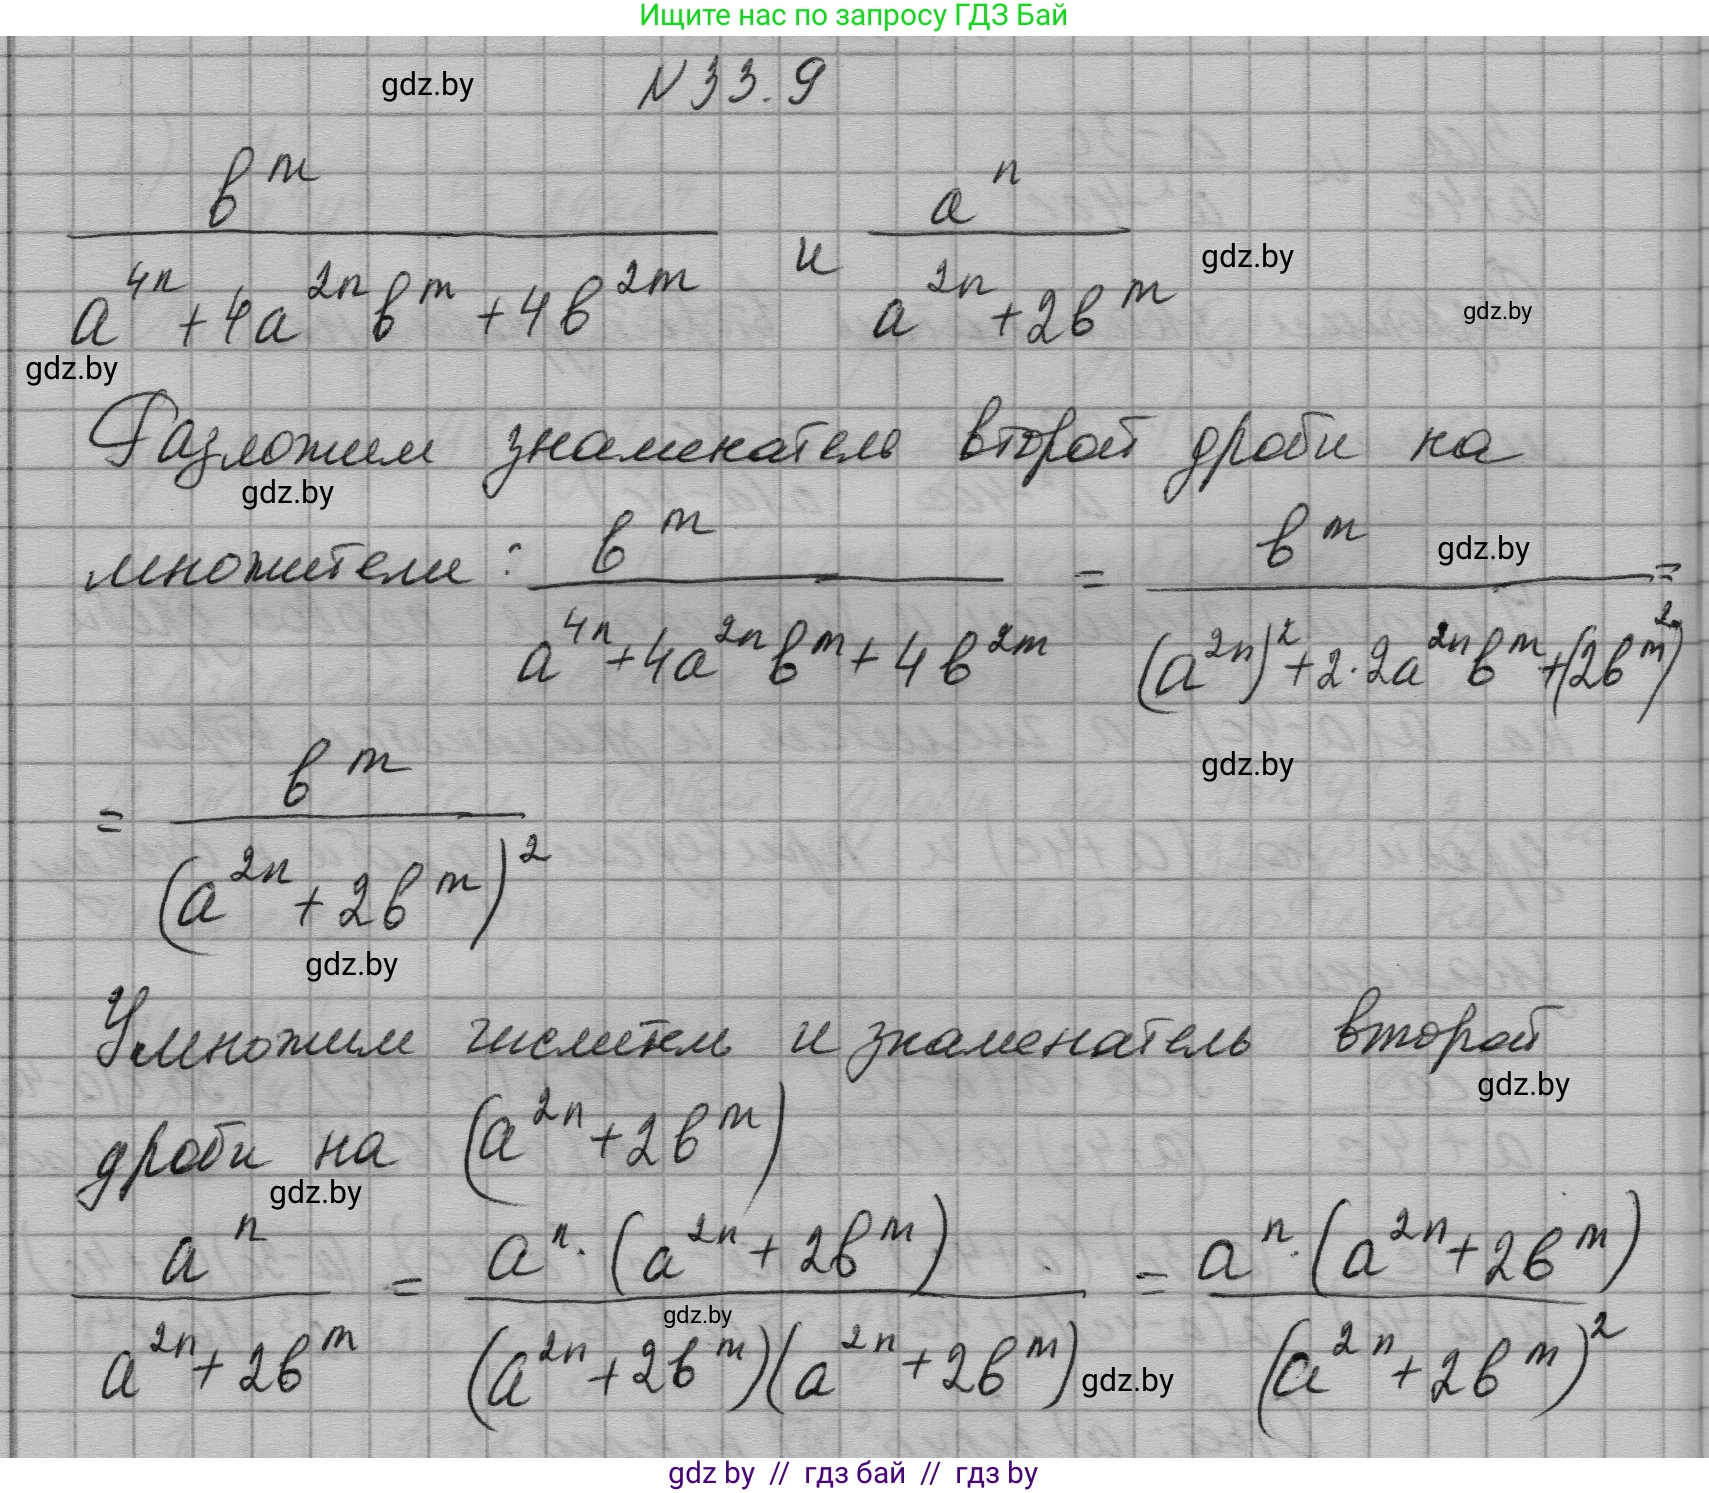 Ищите нас по запросу ГДЗ Бай
gdz.by
N 33.9
b^m / (a^{4n} + 4a^{2n}b^m + 4b^{2m}) и a^n / (a^{2n} + 2b^m)
gdz.by
gdz.by
gdz.by
Разложим знаменатель второй дроби на
gdz.by
множители: b^m / (a^{4n} + 4a^{2n}b^m + 4b^{2m}) = b^m / ((a^{2n})^2 + 2·2a^{2n}b^m + (2b^m)^2) =
gdz.by
gdz.by
= b^m / (a^{2n} + 2b^m)^2
gdz.by
Умножим числитель и знаменатель второй
gdz.by
дроби на (a^{2n} + 2b^m)
gdz.by
a^n / (a^{2n} + 2b^m) = a^n·(a^{2n} + 2b^m) / ((a^{2n} + 2b^m)(a^{2n} + 2b^m)) = a^n·(a^{2n} + 2b^m) / (a^{2n} + 2b^m)^2
gdz.by
gdz.by
gdz by // гдз бай // гдз by